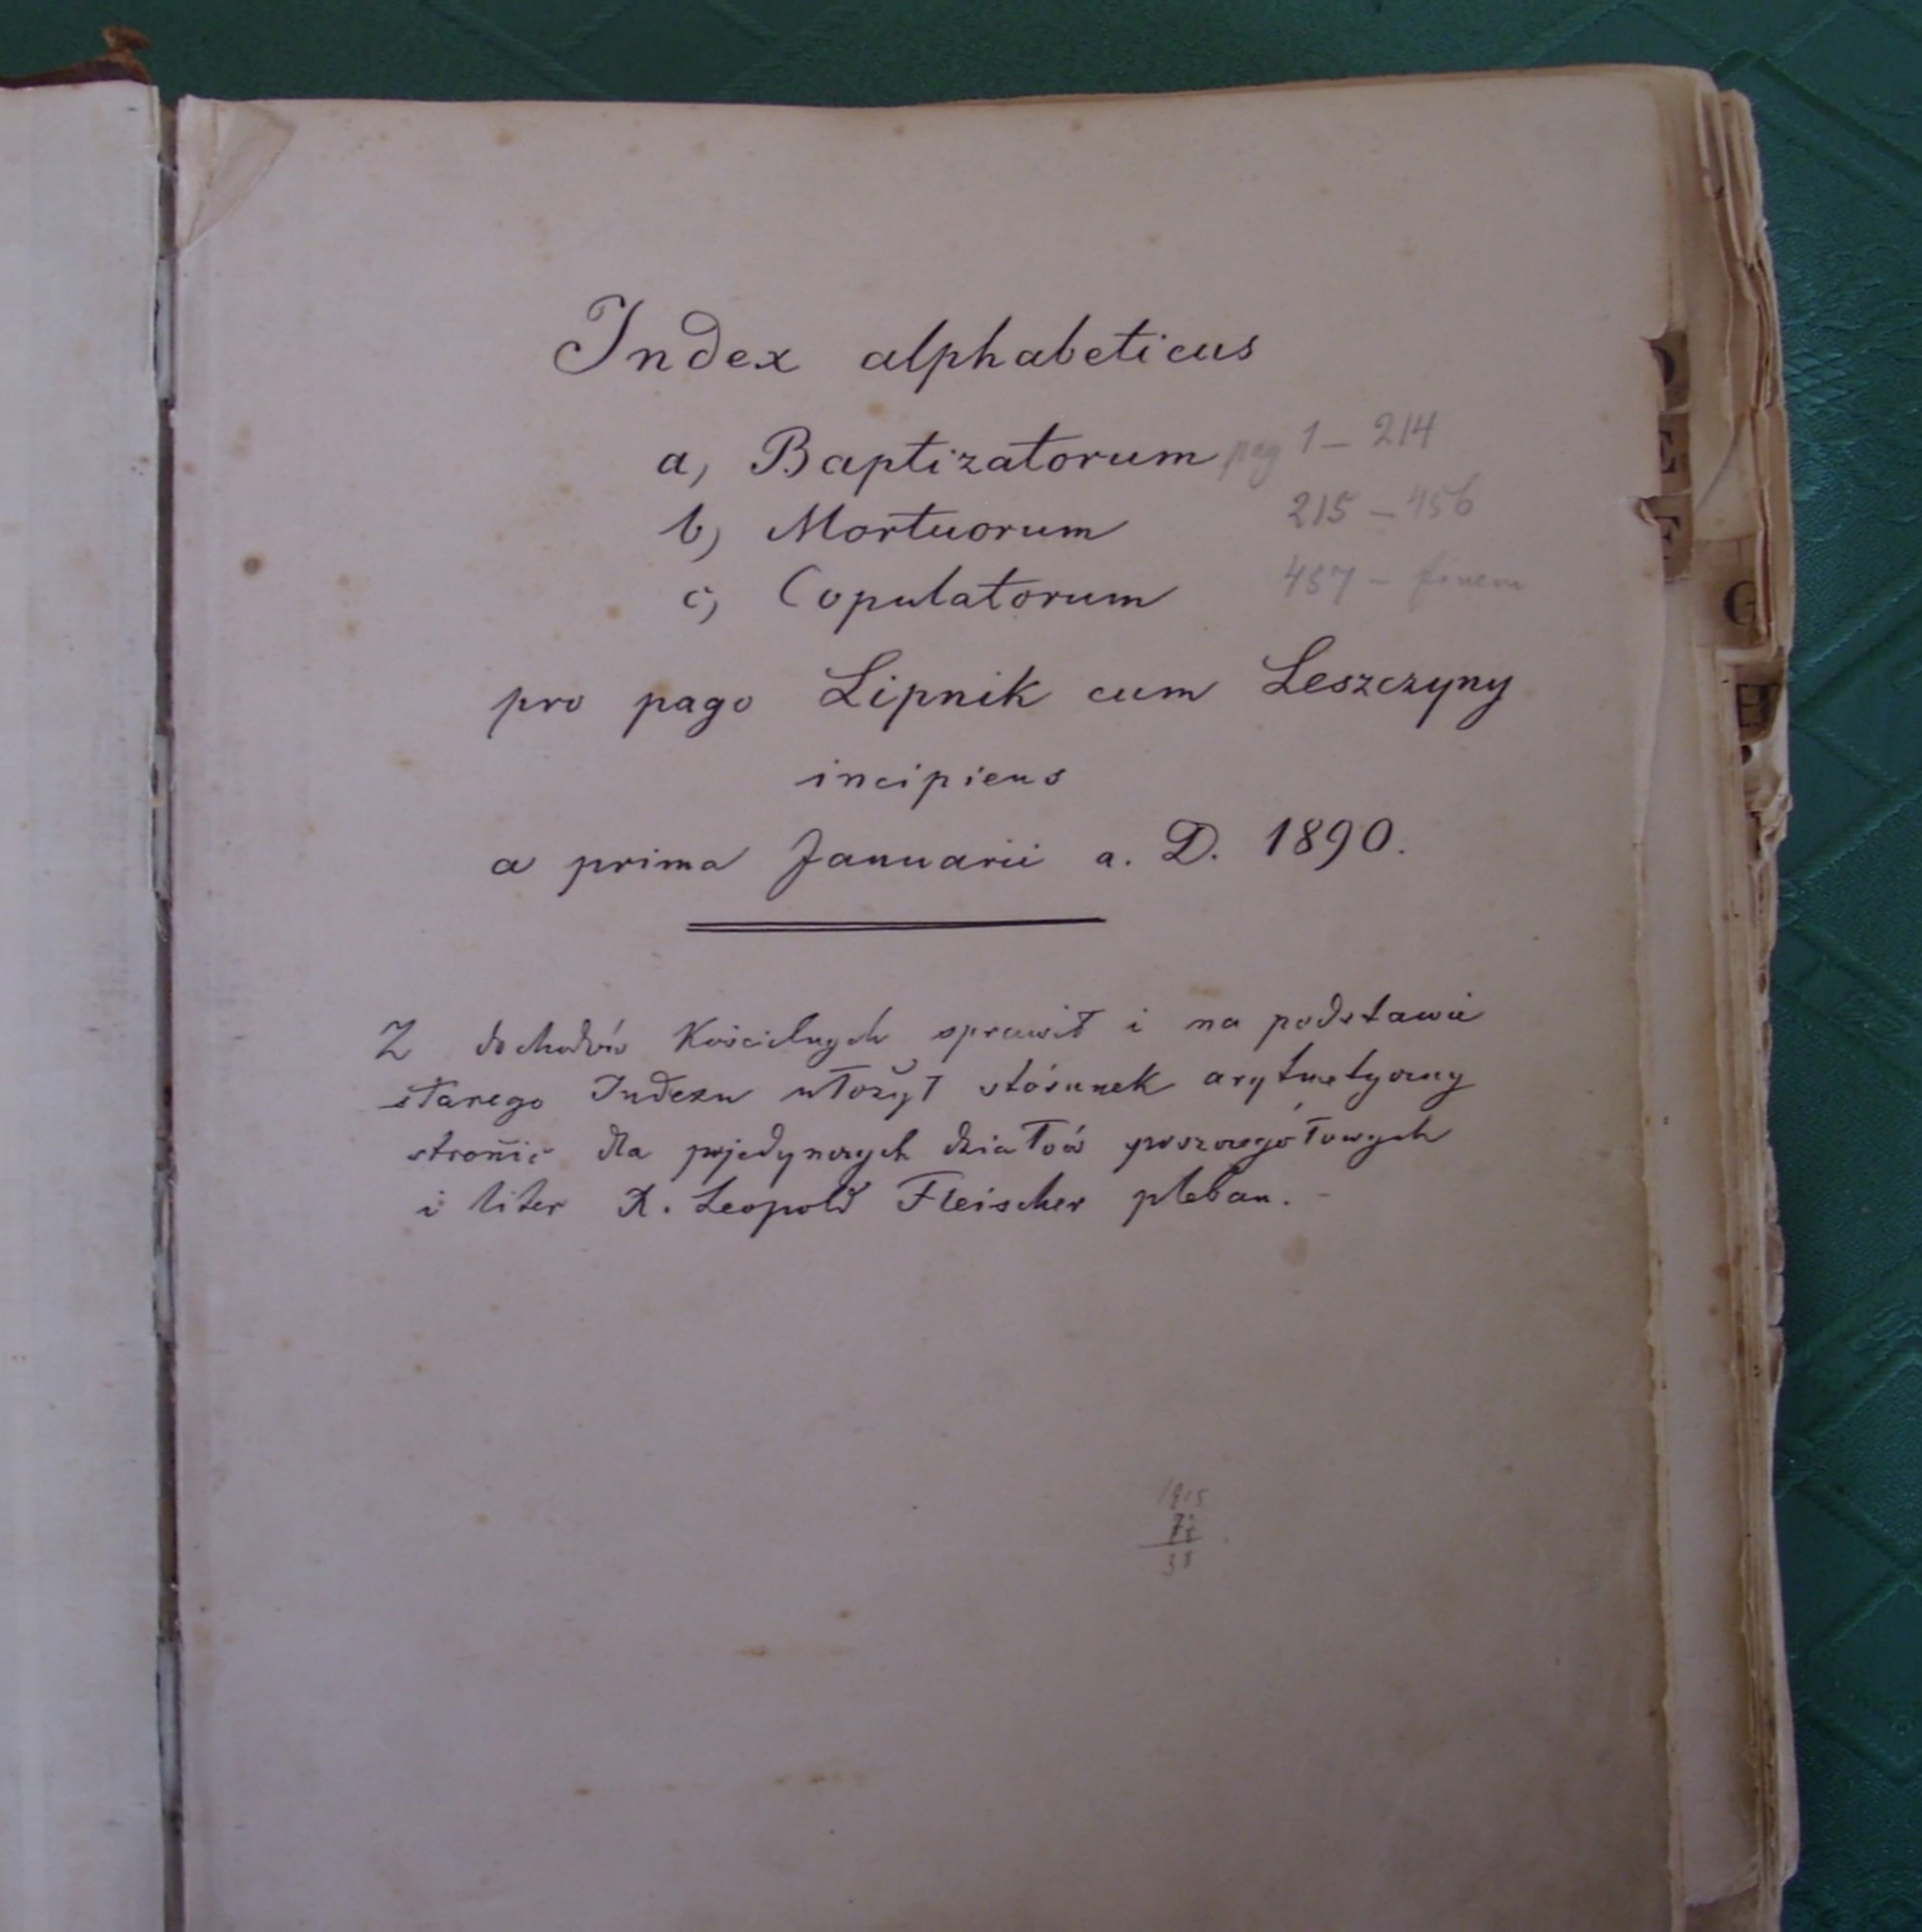 Index alphabeticus
a, Baptizatorum pag 1 – 214
b, Mortuorum 215 – 456
c, Copulatorum 457 – finem
pro pago Lipnik cum Leszczyny
incipiens
a prima Januarii a. D. 1890.
Z dochodów Kościelnych sprawił i na podstawie
starego Indexu ułożył stósunek arytmetyczny
stronic dla pojedynczych działów poszczegółowych
i liter X. Leopold Fleischer pleban. -
1915
38
D
E
F
G
H